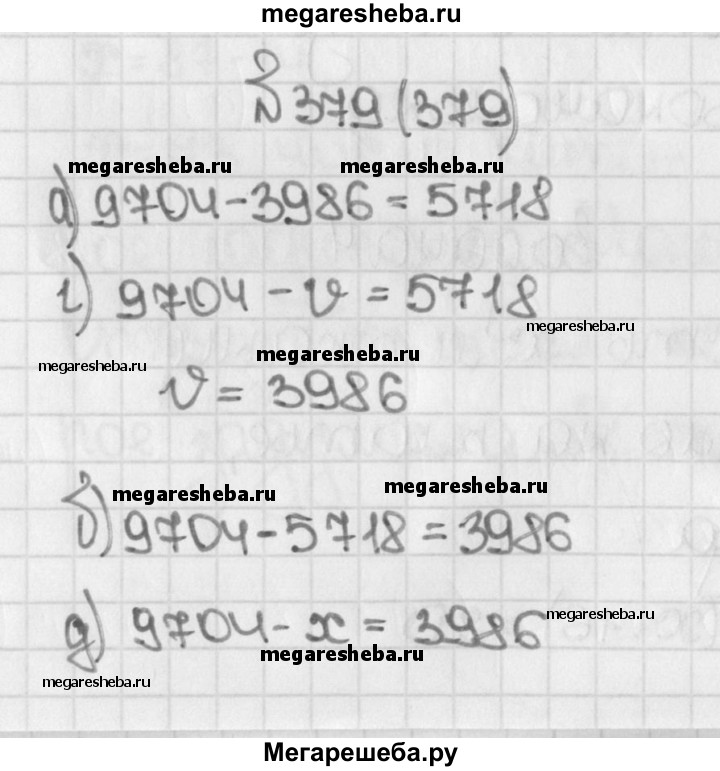 megaresheba.ru
№ 379 (379)
megaresheba.ru megaresheba.ru
а) 9704 - 3986 = 5718
г) 9704 - v = 5718
megaresheba.ru
megaresheba.ru megaresheba.ru
v = 3986
megaresheba.ru megaresheba.ru
б) 9704 - 5718 = 3986
д) 9704 - x = 3986
megaresheba.ru
megaresheba.ru
megaresheba.ru
Мегарешеба.ру